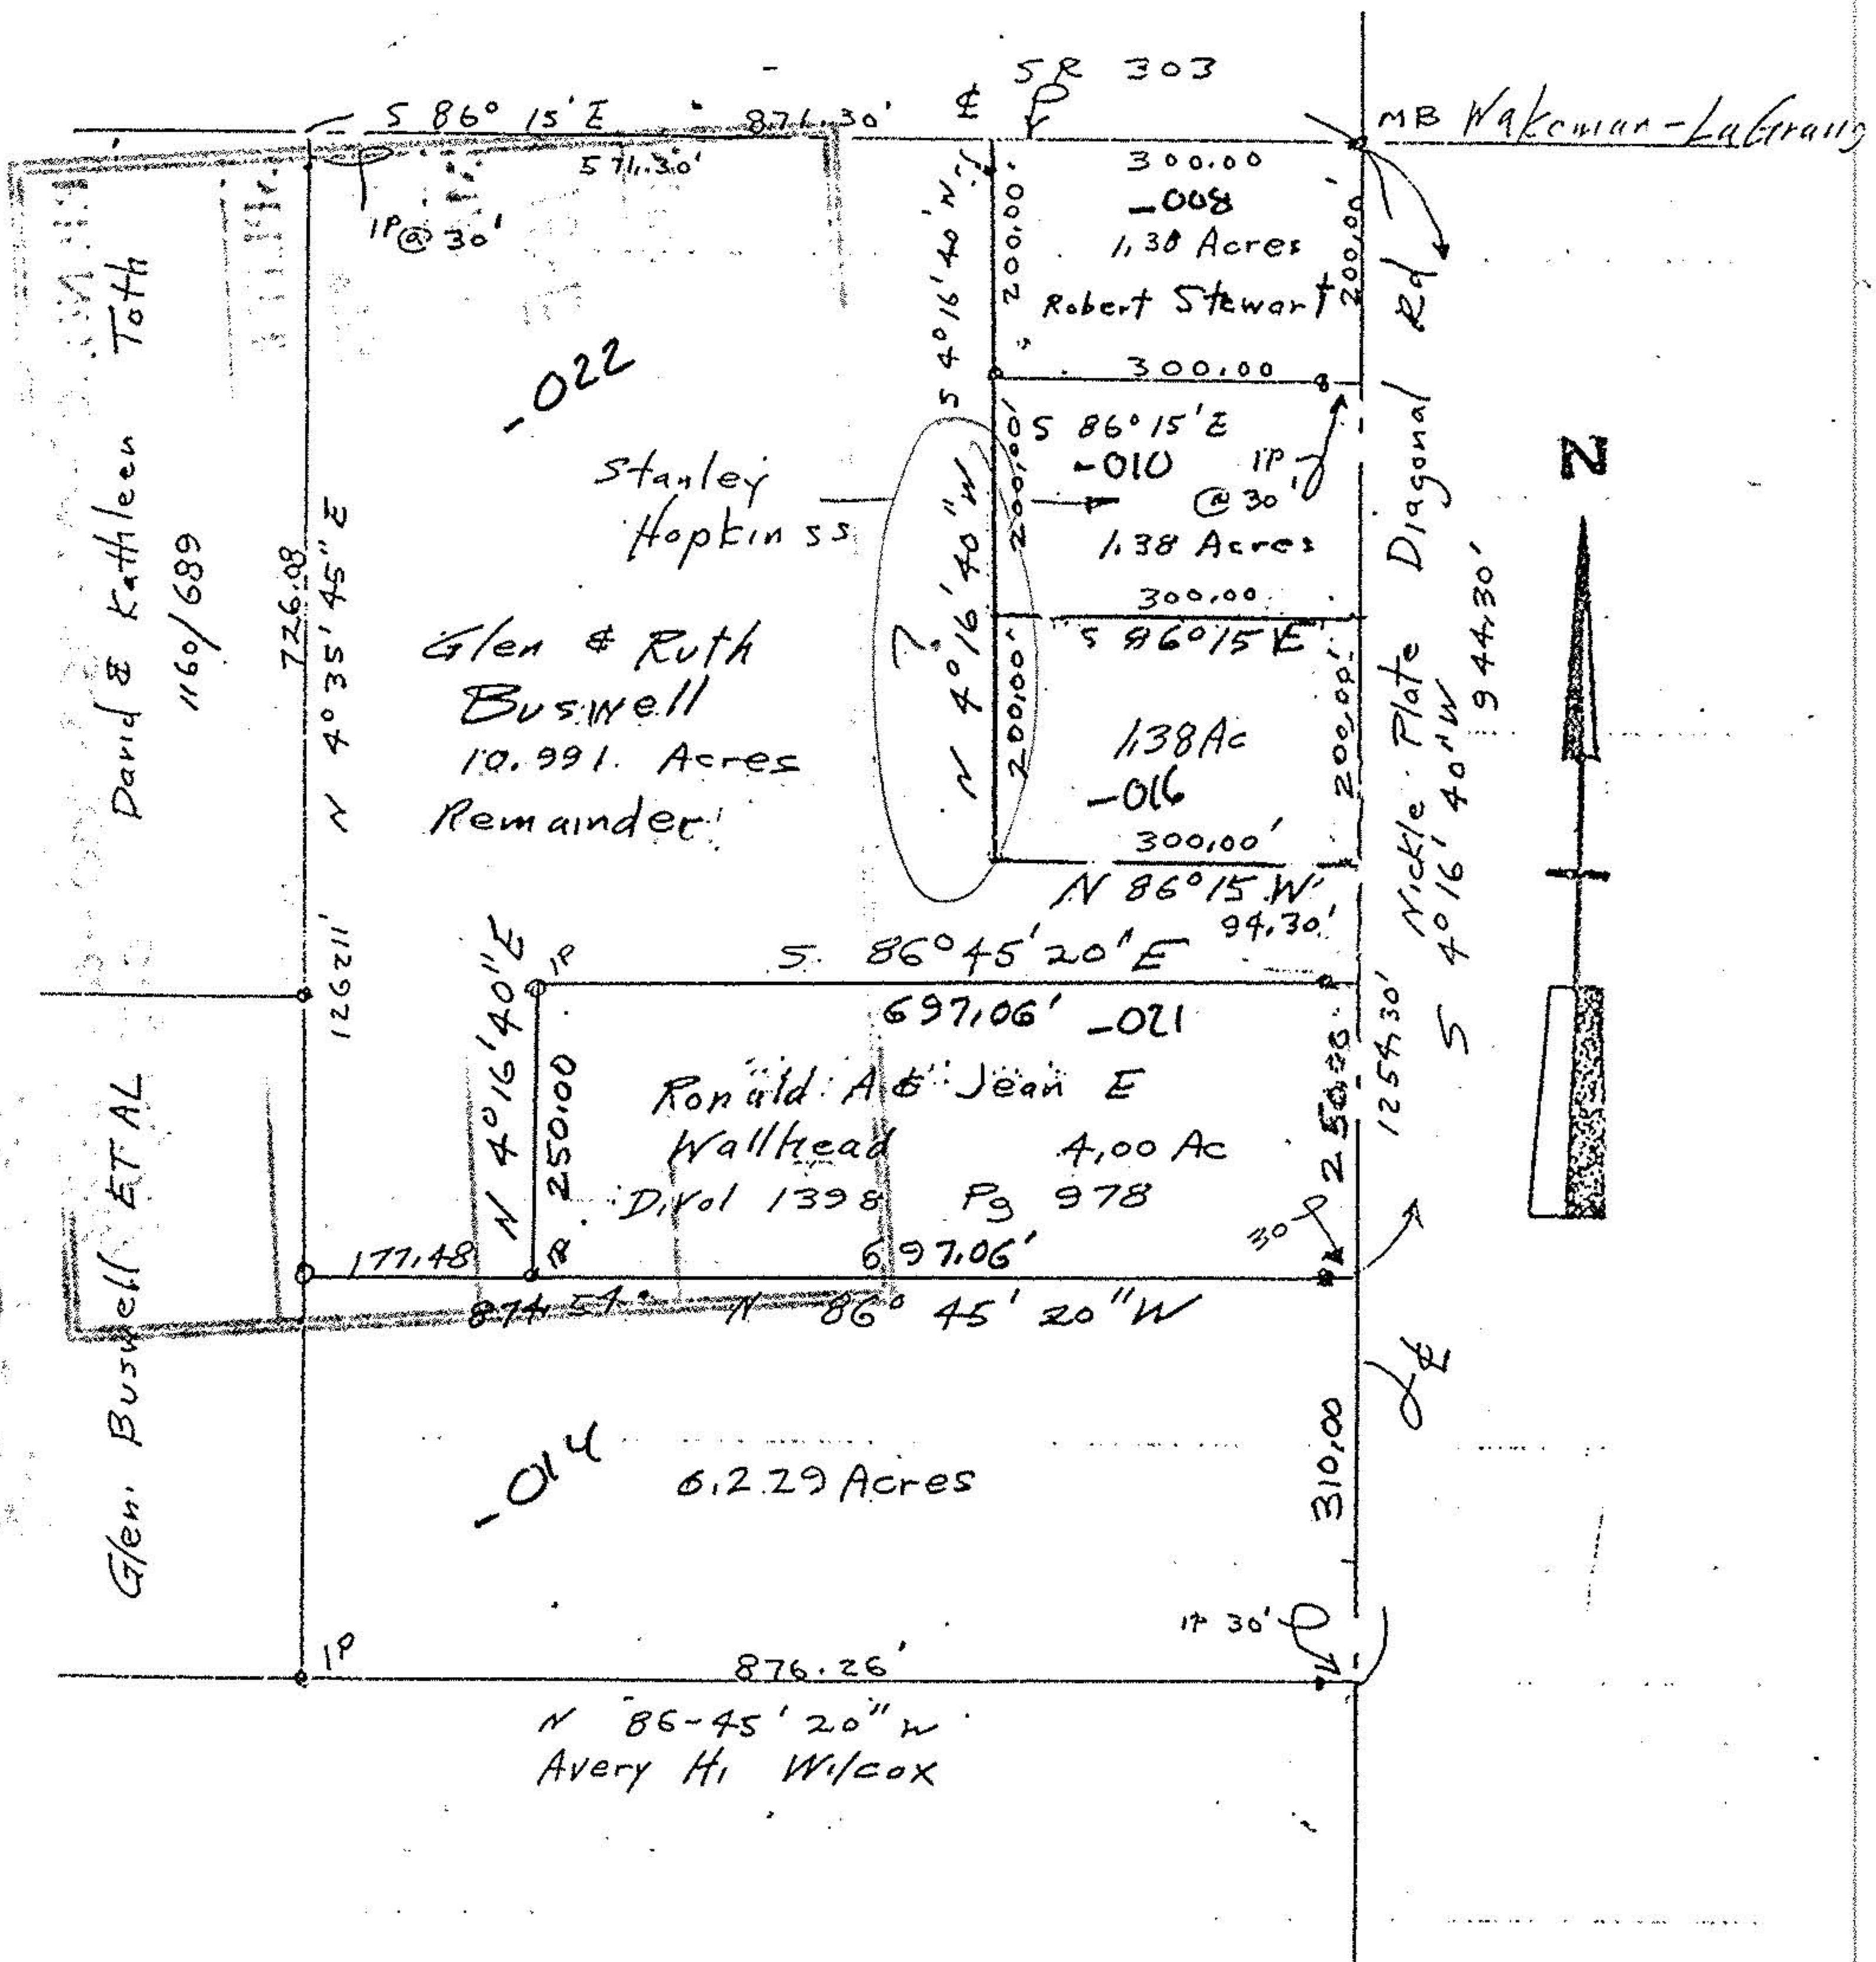 SR 303
S 86° 15' E 871.30'
℄
MB Wakeman-LaGrang
571.30'
IP @ 30'
300.00
-008
1.38 Acres
Robert Stewart
200.00'
200.00'
S 4° 16' 40" W
300.00
S 86° 15' E
-010
IP
@ 30'
1.38 Acres
200.00'
300.00
S 86° 15' E
N 4° 16' 40" W
?
200.00'
200.00'
1.38 Ac
-016
300.00'
N 86° 15 W
94.30'
-022
Stanley
Hopkinss
Glen & Ruth
Buswell
10.991 Acres
Remainder
David & Kathleen Toth
1160/689
726.08
N 4° 35' 45" E
1262.11'
Nickle Plate Diagonal Rd
S 4° 16' 40" W
944.30'
1254.30'
N
S 86° 45' 20" E
IP
697.06' -021
N 4° 16' 40" E
250.00
Ronald A & Jean E
Wallhead 4.00 Ac
D. Vol 1398 Pg 978
250.00
30
177.48
697.06'
874.54 N 86° 45' 20" W
℄
Glen Buswell ET AL
-014
6.229 Acres
310.00
IP 30'
IP
876.26'
N 86-45' 20" W
Avery H. Wilcox